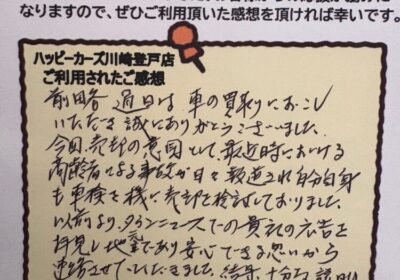 なりますので、ぜひご利用頂いた感想を頂ければ幸いです。
ハッピーカーズ川崎登戸店
ご利用されたご感想
前略 過日は 車の買取りにおこし
いただき誠にありがとうございました。
今回、売却の意図として、最近時における
高齢者による事故が日々報道され自分自身
も車検を機に売却を検討しておりました。
以前より、タウンニュースでの貴社の広告を
拝見し地元であり安心できる思いから
連絡させていただきました。結果、十分な説明